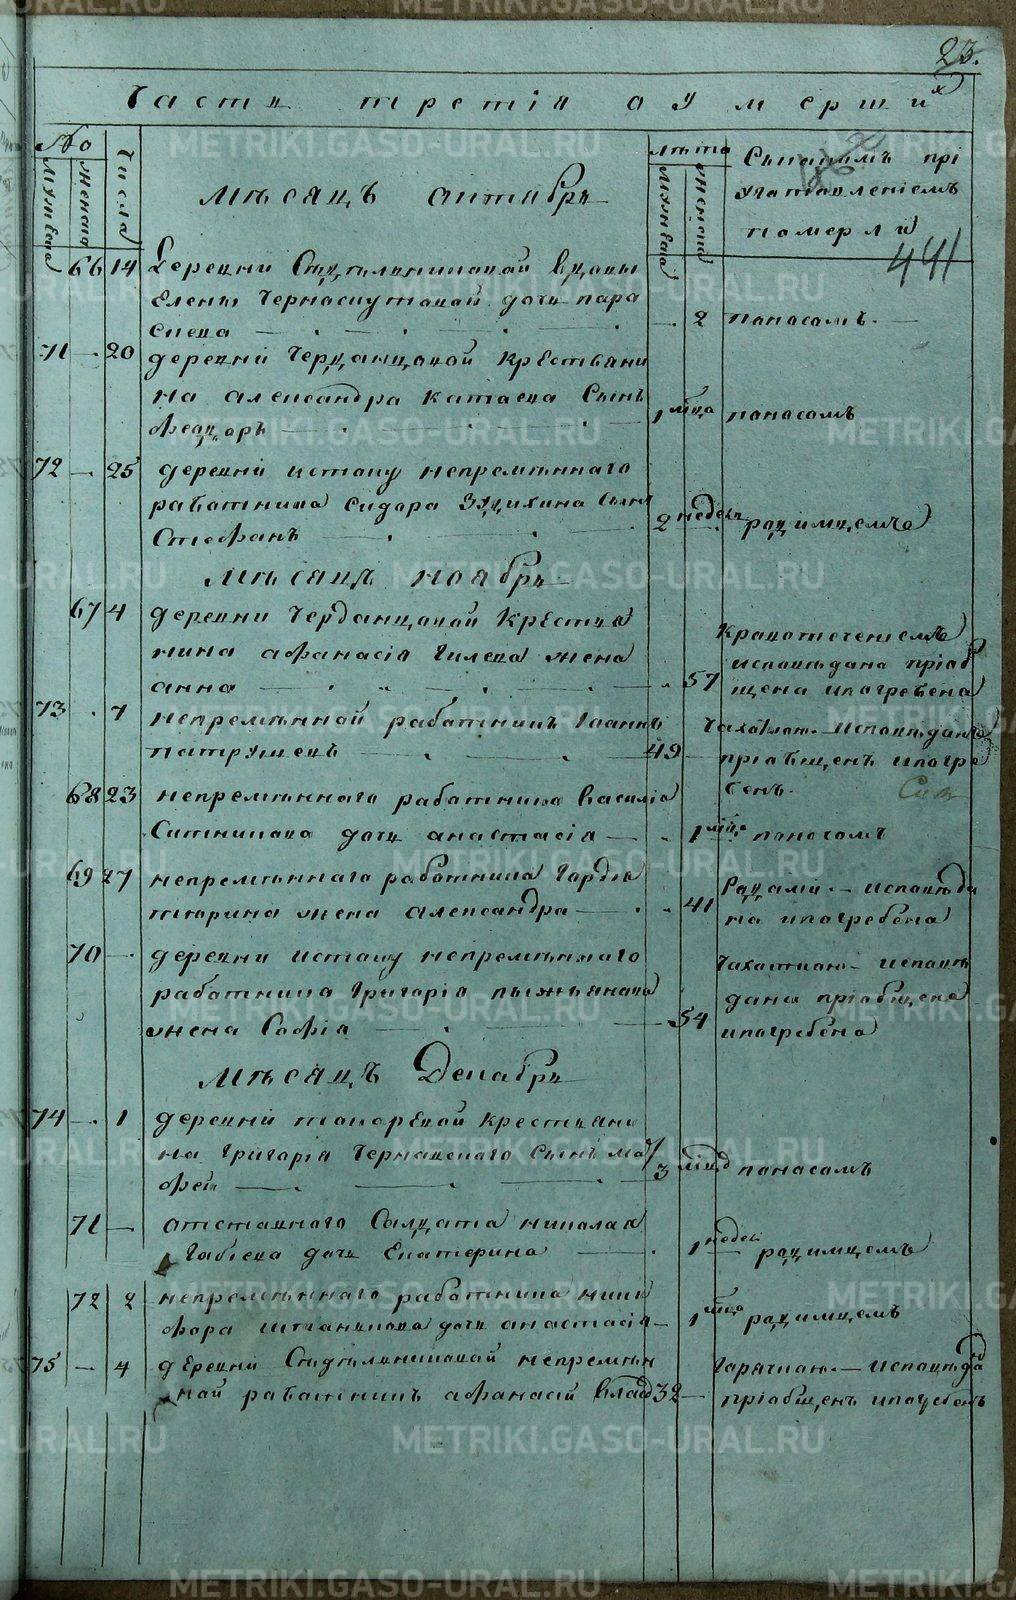 23.
Часть третія о умерших
No
мужеска
женска
Числа
лѣта
мужеска
женска
Съкакимъ прі
учготовленіемъ
померли
441
Мѣсяцъ октябрь
66 14 Деревни вдовы
Елены Черноскутовой дочь пара
скева — 2 поносомъ.
71 — 20 деревни Черданцовой крестьяни
на александра катаева сынъ
Феодоръ — 1 мѣсяца поносомъ
72 — 25 деревни истоку непремѣннаго
работника сидора Зудихина сынъ
Стефанъ 2 недель родимцемъ
Мѣсяць ноябрь
67 4 деревни Черданцовой Крестья
нина афанасія Гилева жена
анна — 57
Кровотеченіемъ
исповѣдана пріоб
щена ипогребена
73 . 7 непремѣнной работникъ Іоаннъ
патрушевъ — 49
Чахоткою. — исповѣданъ
пріобщенъ ипогре
бенъ.
68 23 непремѣннаго работника василія
Ситникова дочь анастасія — 1 мѣсяца поносомъ
69 27 непремѣннаго работника Гордѣя
тюрина жена александра — 41
Родами. — исповѣда
на ипогребена
70 — деревни истоку непремѣннаго
работника Григорія пьянкова
жена Софія — 54
Чахоткою — исповѣ
дана пріобщена
ипогребена
Мѣсяцъ Декабрь
74 — 1 деревни токоревой крестьяни
на Григорія Чернавскаго сынъ мо
фей — 3 поносомъ
71 — отставнаго Солдата николая
Габіева дочь Екатерина — 1 недели родимцемъ
72 2 непремѣннаго работника ники
фора дочь анастасія — 1 мѣсяца родимцемъ
75 — 4 деревни непремѣн
ной работникъ афанасій 32 —
Горячкою. — исповѣдан
пріобщенъ ипогребенъ
METRIKI.GASO-URAL.RU